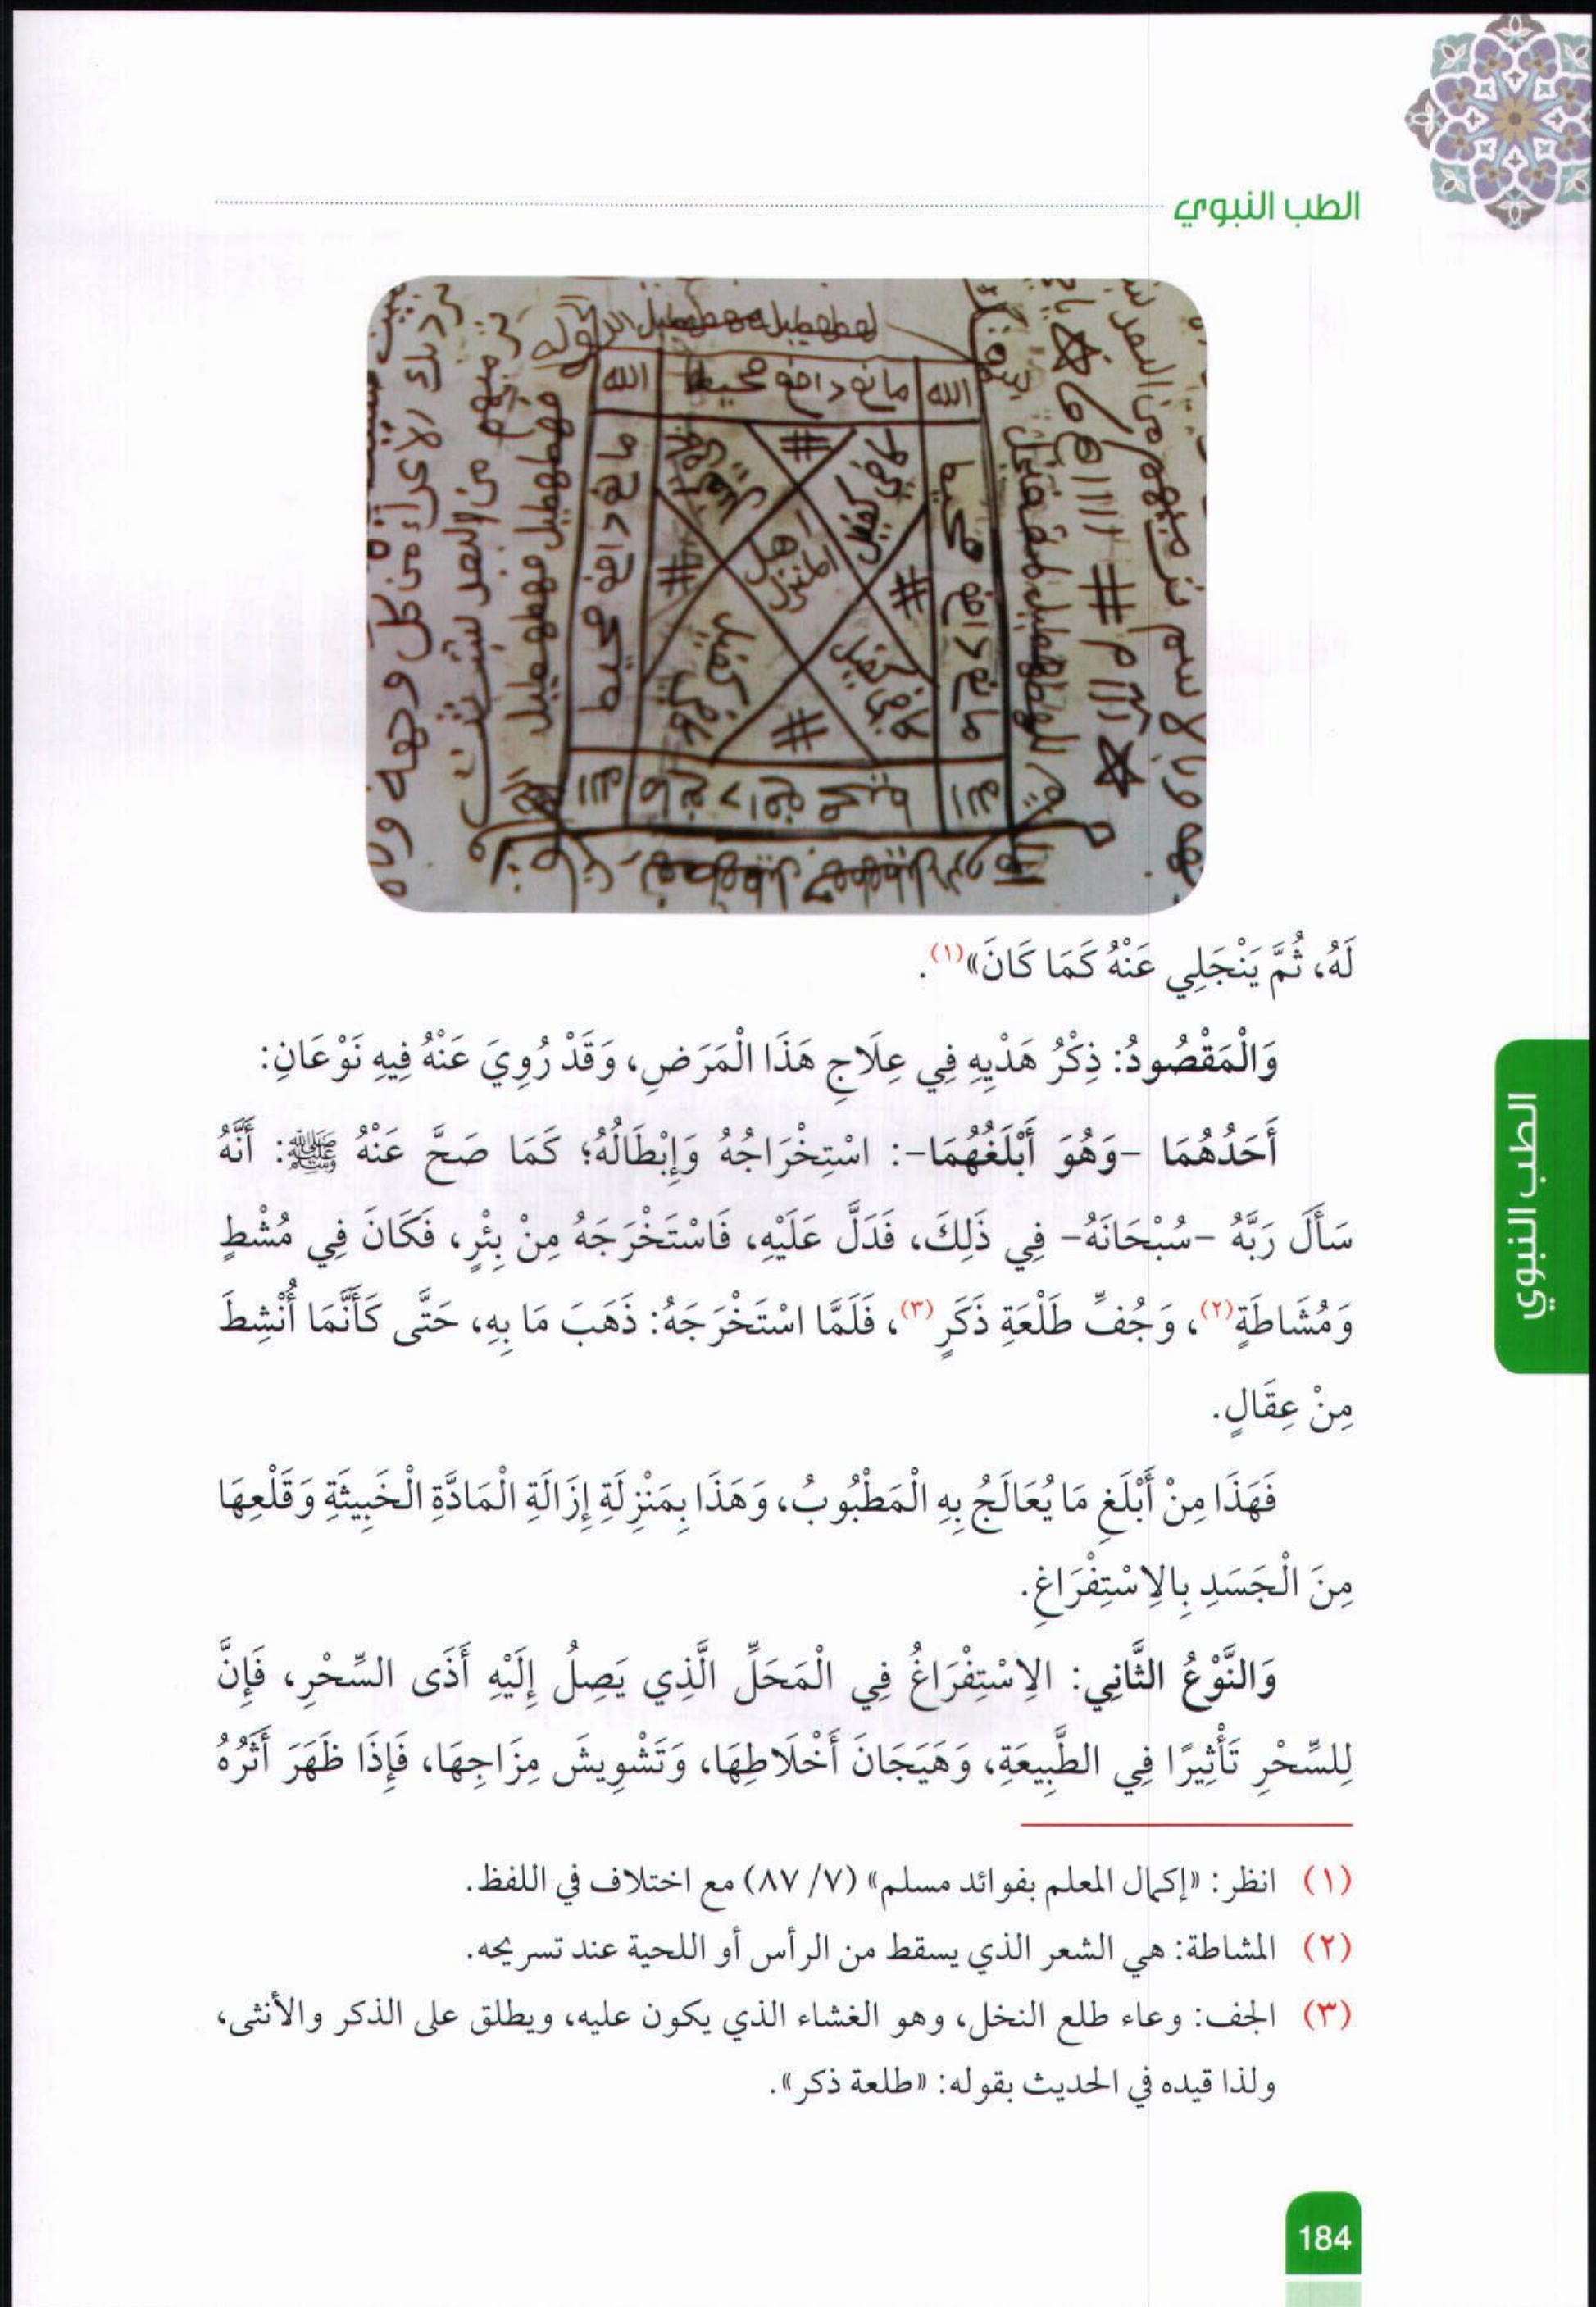 الطب النبوي
الله مانع دافع محيط الله
مانع دافع محيط
مانع دافع محيط
كافي كفيل
لَهُ، ثُمَّ يَنْجَلِي عَنْهُ كَمَا كَانَ»(١).
وَالْمَقْصُودُ: ذِكْرُ هَدْيِهِ فِي عِلَاجِ هَذَا الْمَرَضِ، وَقَدْ رُوِيَ عَنْهُ فِيهِ نَوْعَانِ:
أَحَدُهُمَا -وَهُوَ أَبْلَغُهُمَا-: اسْتِخْرَاجُهُ وَإِبْطَالُهُ؛ كَمَا صَحَّ عَنْهُ ﷺ: أَنَّهُ
سَأَلَ رَبَّهُ -سُبْحَانَهُ- فِي ذَلِكَ، فَدَلَّ عَلَيْهِ، فَاسْتَخْرَجَهُ مِنْ بِئْرٍ، فَكَانَ فِي مُشْطٍ
وَمُشَاطَةٍ(٢)، وَجُفِّ طَلْعَةِ ذَكَرٍ(٣)، فَلَمَّا اسْتَخْرَجَهُ: ذَهَبَ مَا بِهِ، حَتَّى كَأَنَّمَا أُنْشِطَ
مِنْ عِقَالٍ.
فَهَذَا مِنْ أَبْلَغِ مَا يُعَالَجُ بِهِ الْمَطْبُوبُ، وَهَذَا بِمَنْزِلَةِ إِزَالَةِ الْمَادَّةِ الْخَبِيثَةِ وَقَلْعِهَا
مِنَ الْجَسَدِ بِالِاسْتِفْرَاغِ.
وَالنَّوْعُ الثَّانِي: الِاسْتِفْرَاغُ فِي الْمَحَلِّ الَّذِي يَصِلُ إِلَيْهِ أَذَى السِّحْرِ، فَإِنَّ
لِلسِّحْرِ تَأْثِيرًا فِي الطَّبِيعَةِ، وَهَيَجَانَ أَخْلَاطِهَا، وَتَشْوِيشَ مِزَاجِهَا، فَإِذَا ظَهَرَ أَثَرُهُ
(١) انظر: «إكمال المعلم بفوائد مسلم» (٧/ ٨٧) مع اختلاف في اللفظ.
(٢) المشاطة: هي الشعر الذي يسقط من الرأس أو اللحية عند تسريحه.
(٣) الجف: وعاء طلع النخل، وهو الغشاء الذي يكون عليه، ويطلق على الذكر والأنثى،
ولذا قيده في الحديث بقوله: «طلعة ذكر».
الطب النبوي
184